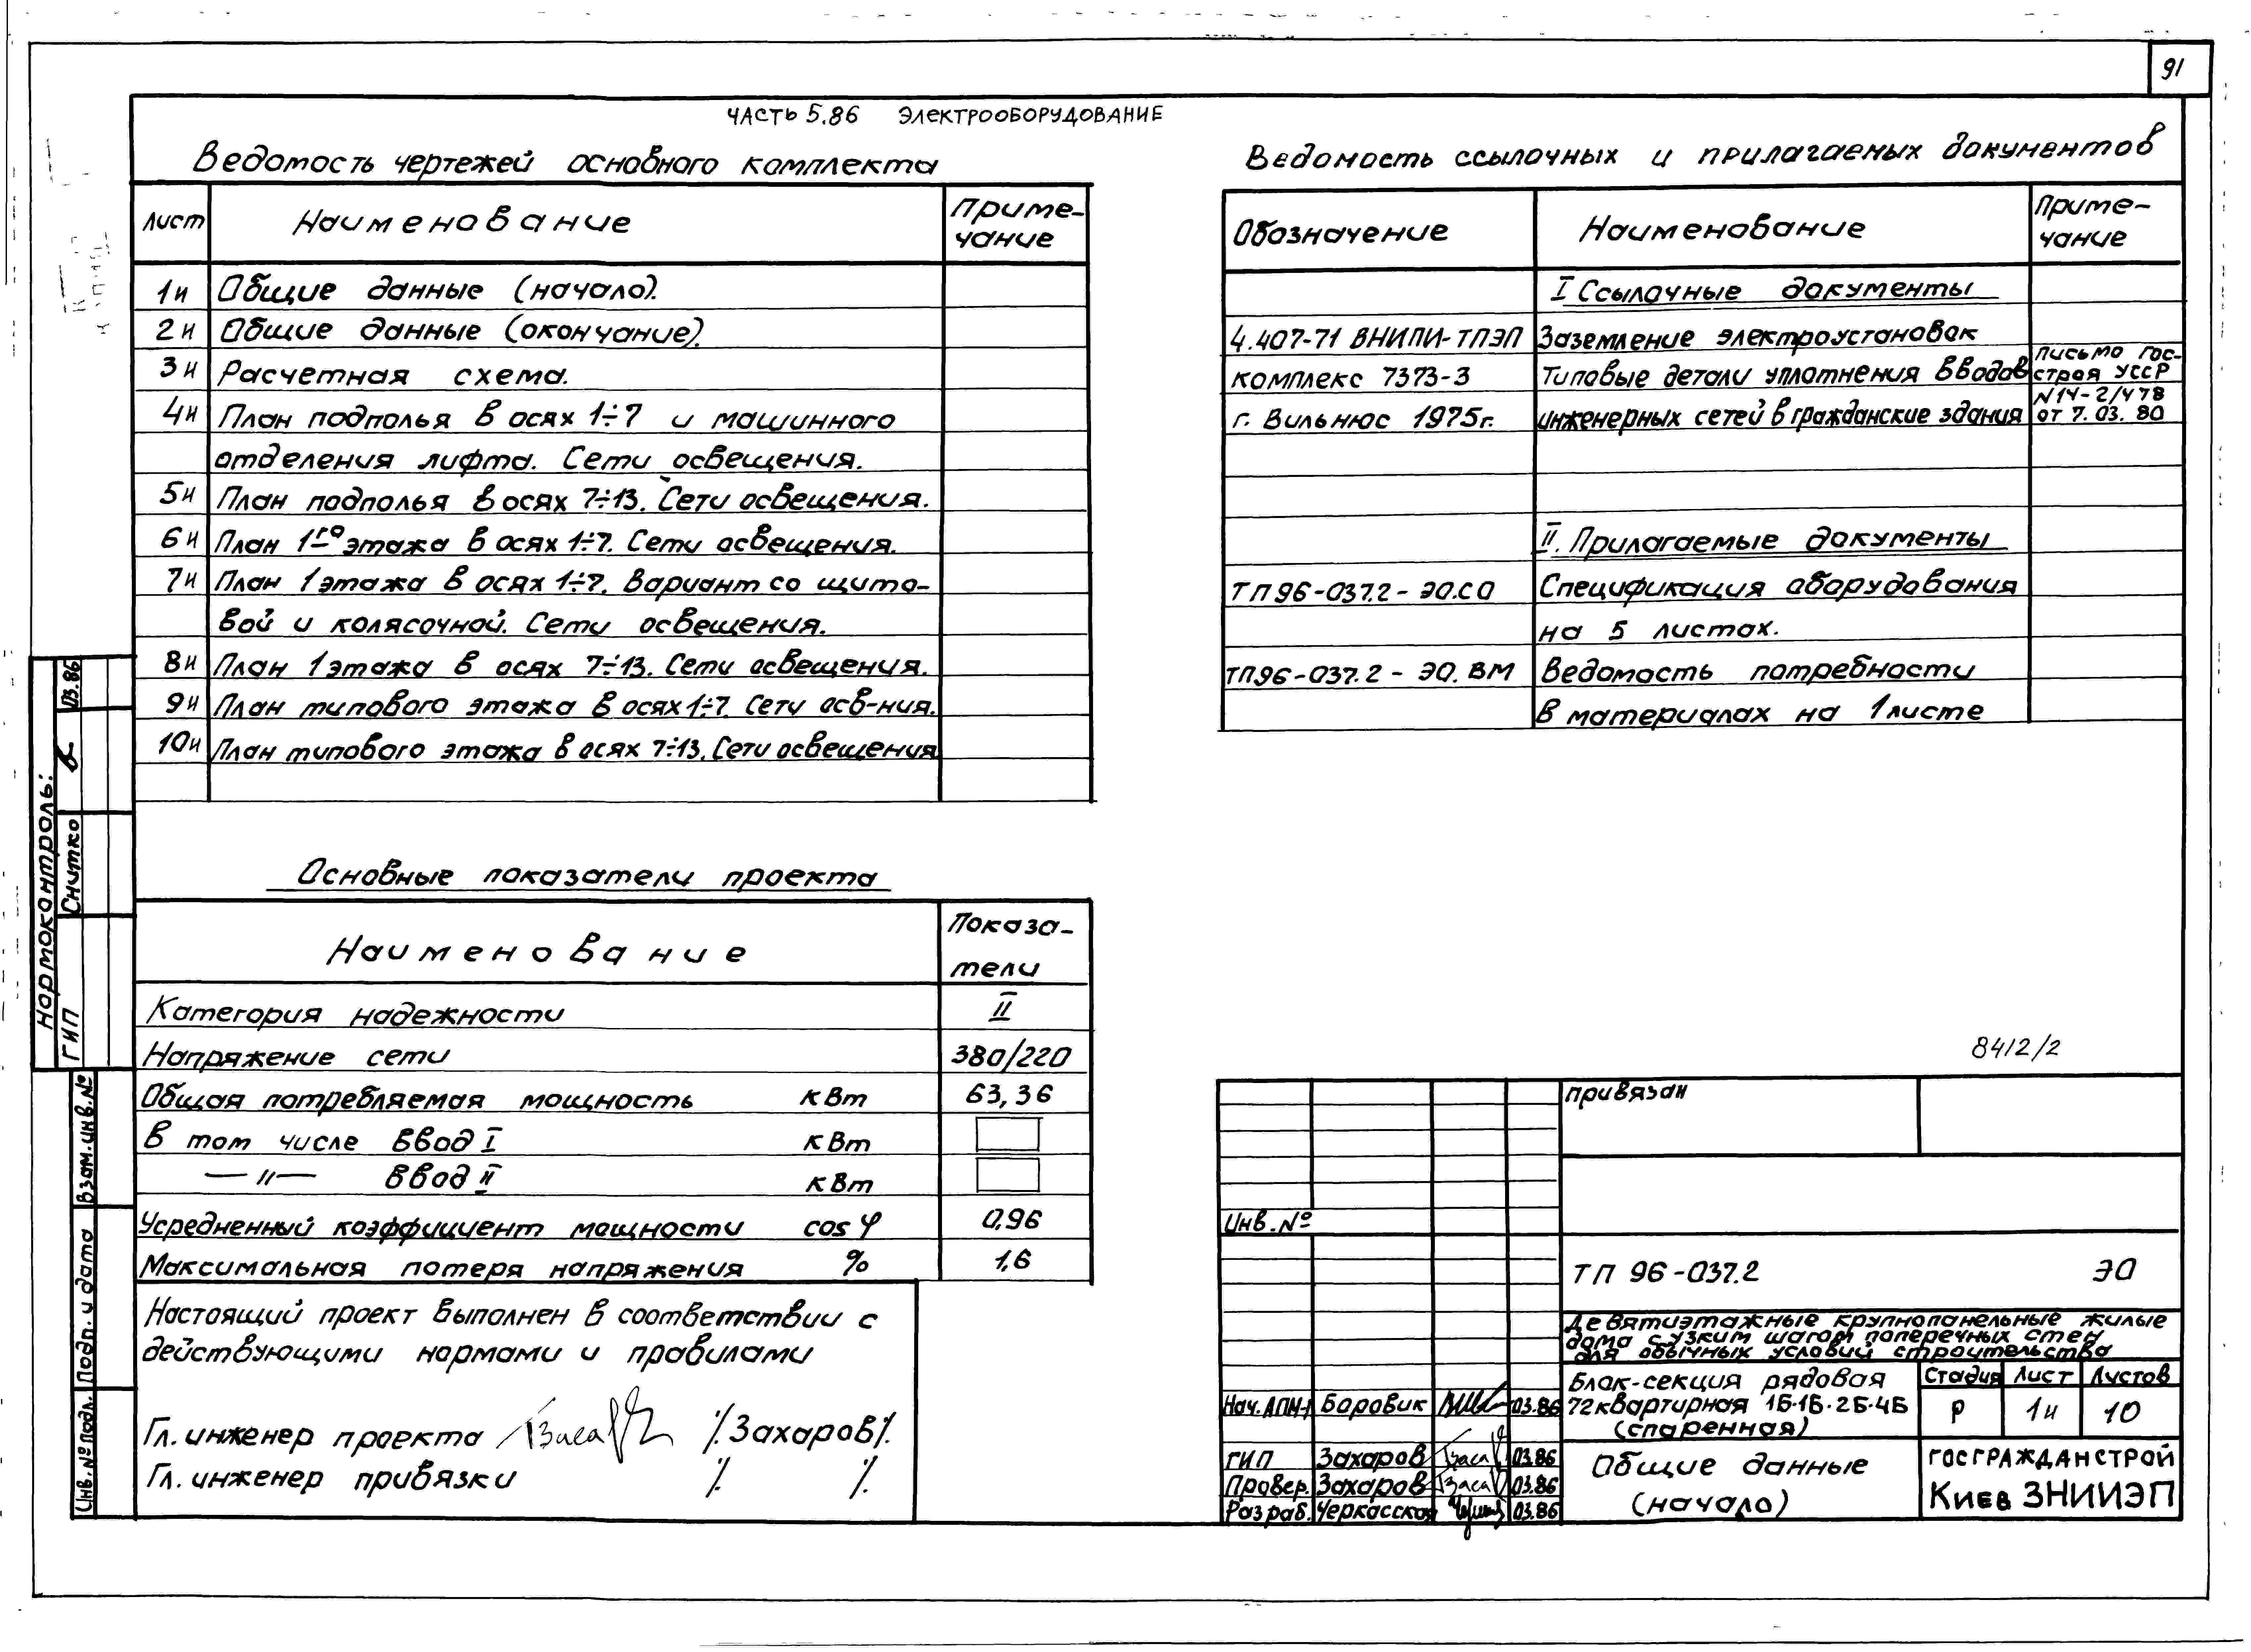 91
ЧАСТЬ 5.86 ЭЛЕКТРООБОРУДОВАНИЕ
Ведомость чертежей основного комплекта
Лист Наименование Приме-
чание
1и Общие данные (начало).
2и Общие данные (окончание).
3и Расчетная схема.
4и План подполья в осях 1÷7 и машинного
отделения лифта. Сети освещения.
5и План подполья в осях 7÷13. Сети освещения.
6и План 1го этажа в осях 1÷7. Сети освещения.
7и План 1 этажа в осях 1÷7. Вариант со щито-
вой и колясочной. Сети освещения.
8и План 1 этажа в осях 7÷13. Сети освещения.
9и План типового этажа в осях 1÷7. Сети осв-ния.
10и План типового этажа в осях 7÷13. Сети освещения
Ведомость ссылочных и прилагаемых документов
Обозначение Наименование Приме-
чание
I Ссылочные документы
4.407-71 ВНИПИ-ТПЭП Заземление электроустановок
комплекс 7373-3 Типовые детали уплотнения вводов письмо Гос-
строя УССР
г. Вильнюс 1975г. инженерных сетей в гражданские здания N14-2/478
от 7.03.80
II. Прилагаемые документы
ТП96-037.2-ЭО.СО Спецификация оборудования
на 5 листах.
ТП96-037.2-ЭО.ВМ Ведомость потребности
в материалах на 1 листе
Основные показатели проекта
Наименование Показа-
тели
Категория надежности II
Напряжение сети 380/220
Общая потребляемая мощность кВт 63,36
В том числе ввод I кВт
—"— ввод II кВт
Усредненный коэффициент мощности cos φ 0,96
Максимальная потеря напряжения % 1,6
Настоящий проект выполнен в соответствии с
действующими нормами и правилами
Гл. инженер проекта /Захаров/
Гл. инженер привязки / /
Нормоконтроль:
ГИП Снитко 03.86
Взам. инв. №
Подп. и дата
Инв. № подл.
8412/2
привязан
Инв. №
ТП 96-037.2 ЭО
Девятиэтажные крупнопанельные жилые
дома с узким шагом поперечных стен
для обычных условий строительства
Блок-секция рядовая
72 квартирная 1Б·1Б·2Б·4Б
(спаренная)
Стадия Лист Листов
Р 1и 10
Общие данные
(начало)
ГОСГРАЖДАНСТРОЙ
Киев ЗНИИЭП
Нач. АПМ-1 Боровик 03.86
ГИП Захаров 03.86
Провер. Захаров 03.86
Разраб. Черкасская 03.86